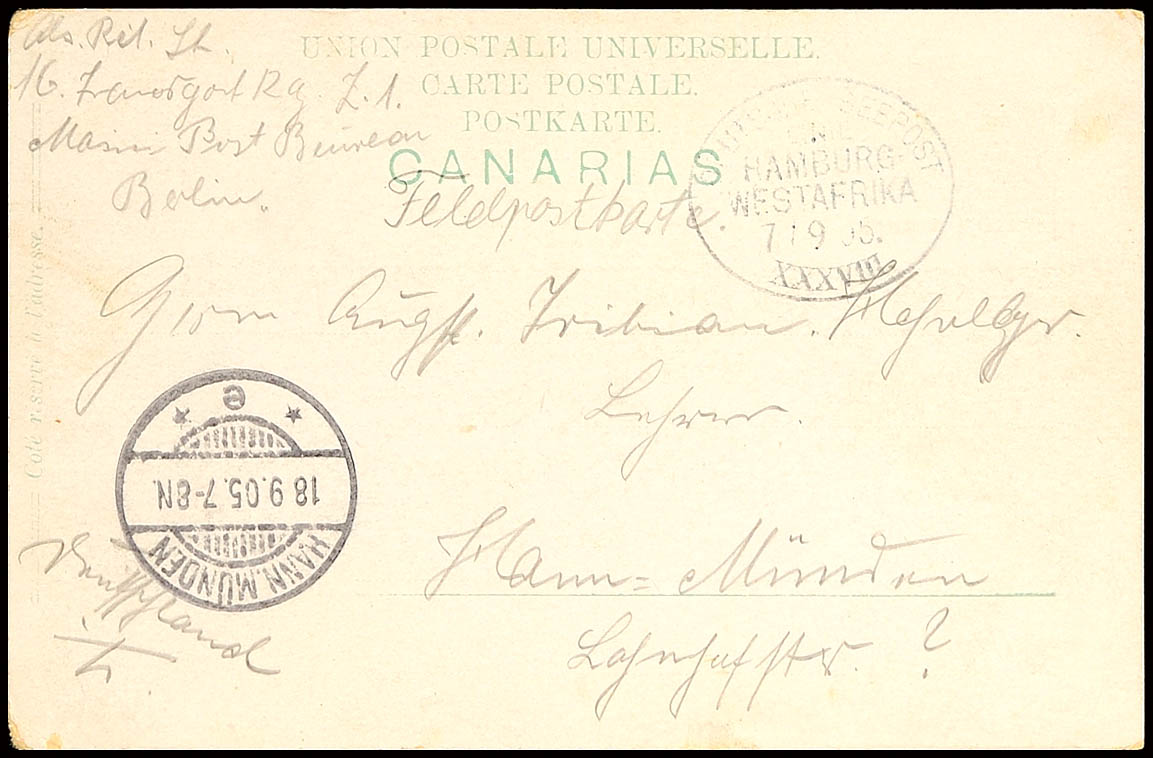 Abs. Rit. St.
16. Transport Rg. Z. 1.
Marine Post Bureau
Berlin.
UNION POSTALE UNIVERSELLE.
CARTE POSTALE.
POSTKARTE.
CANARIAS
Feldpostkarte.
DEUTSCHE SEEPOST
LINIE
HAMBURG-
WESTAFRIKA
7 9 05.
XXXVIII
Côté réservé à l'adresse.
Herrn Aug. Tribian.
Lehrer.
Hann=Münden
Bahnhofstr. ?
Deutschland
e
18.9.05.7-8N.
HANN. MÜNDEN